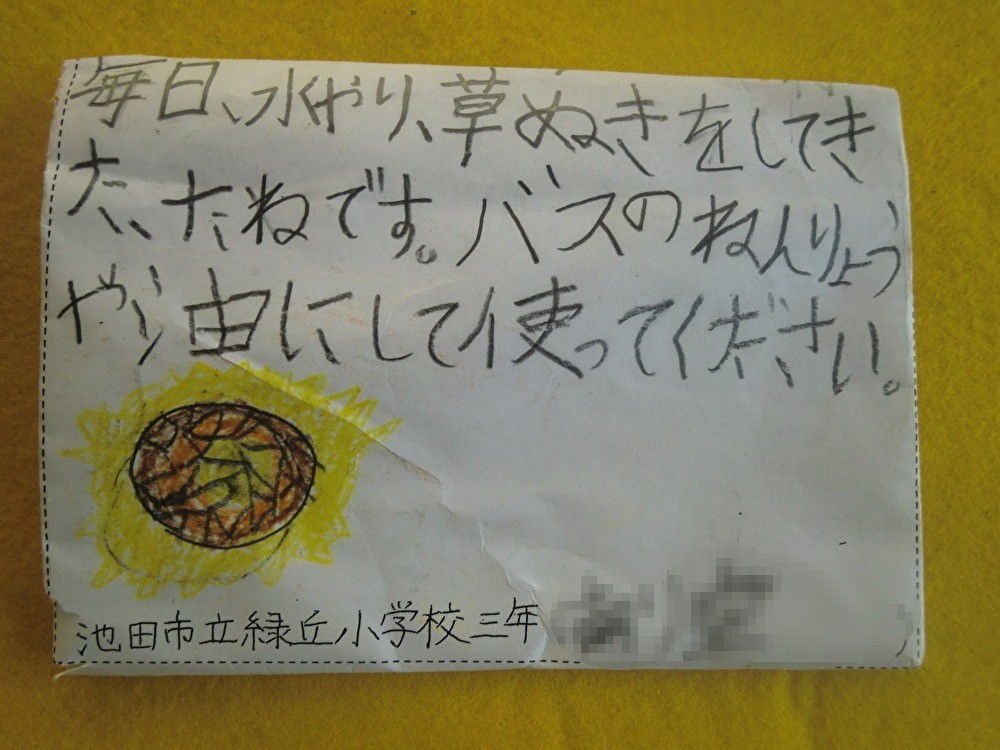 毎日、水やり、草ぬきをしてき
た、たねです。バスのねんりょう
や、油にして使ってください。
池田市立緑丘小学校三年